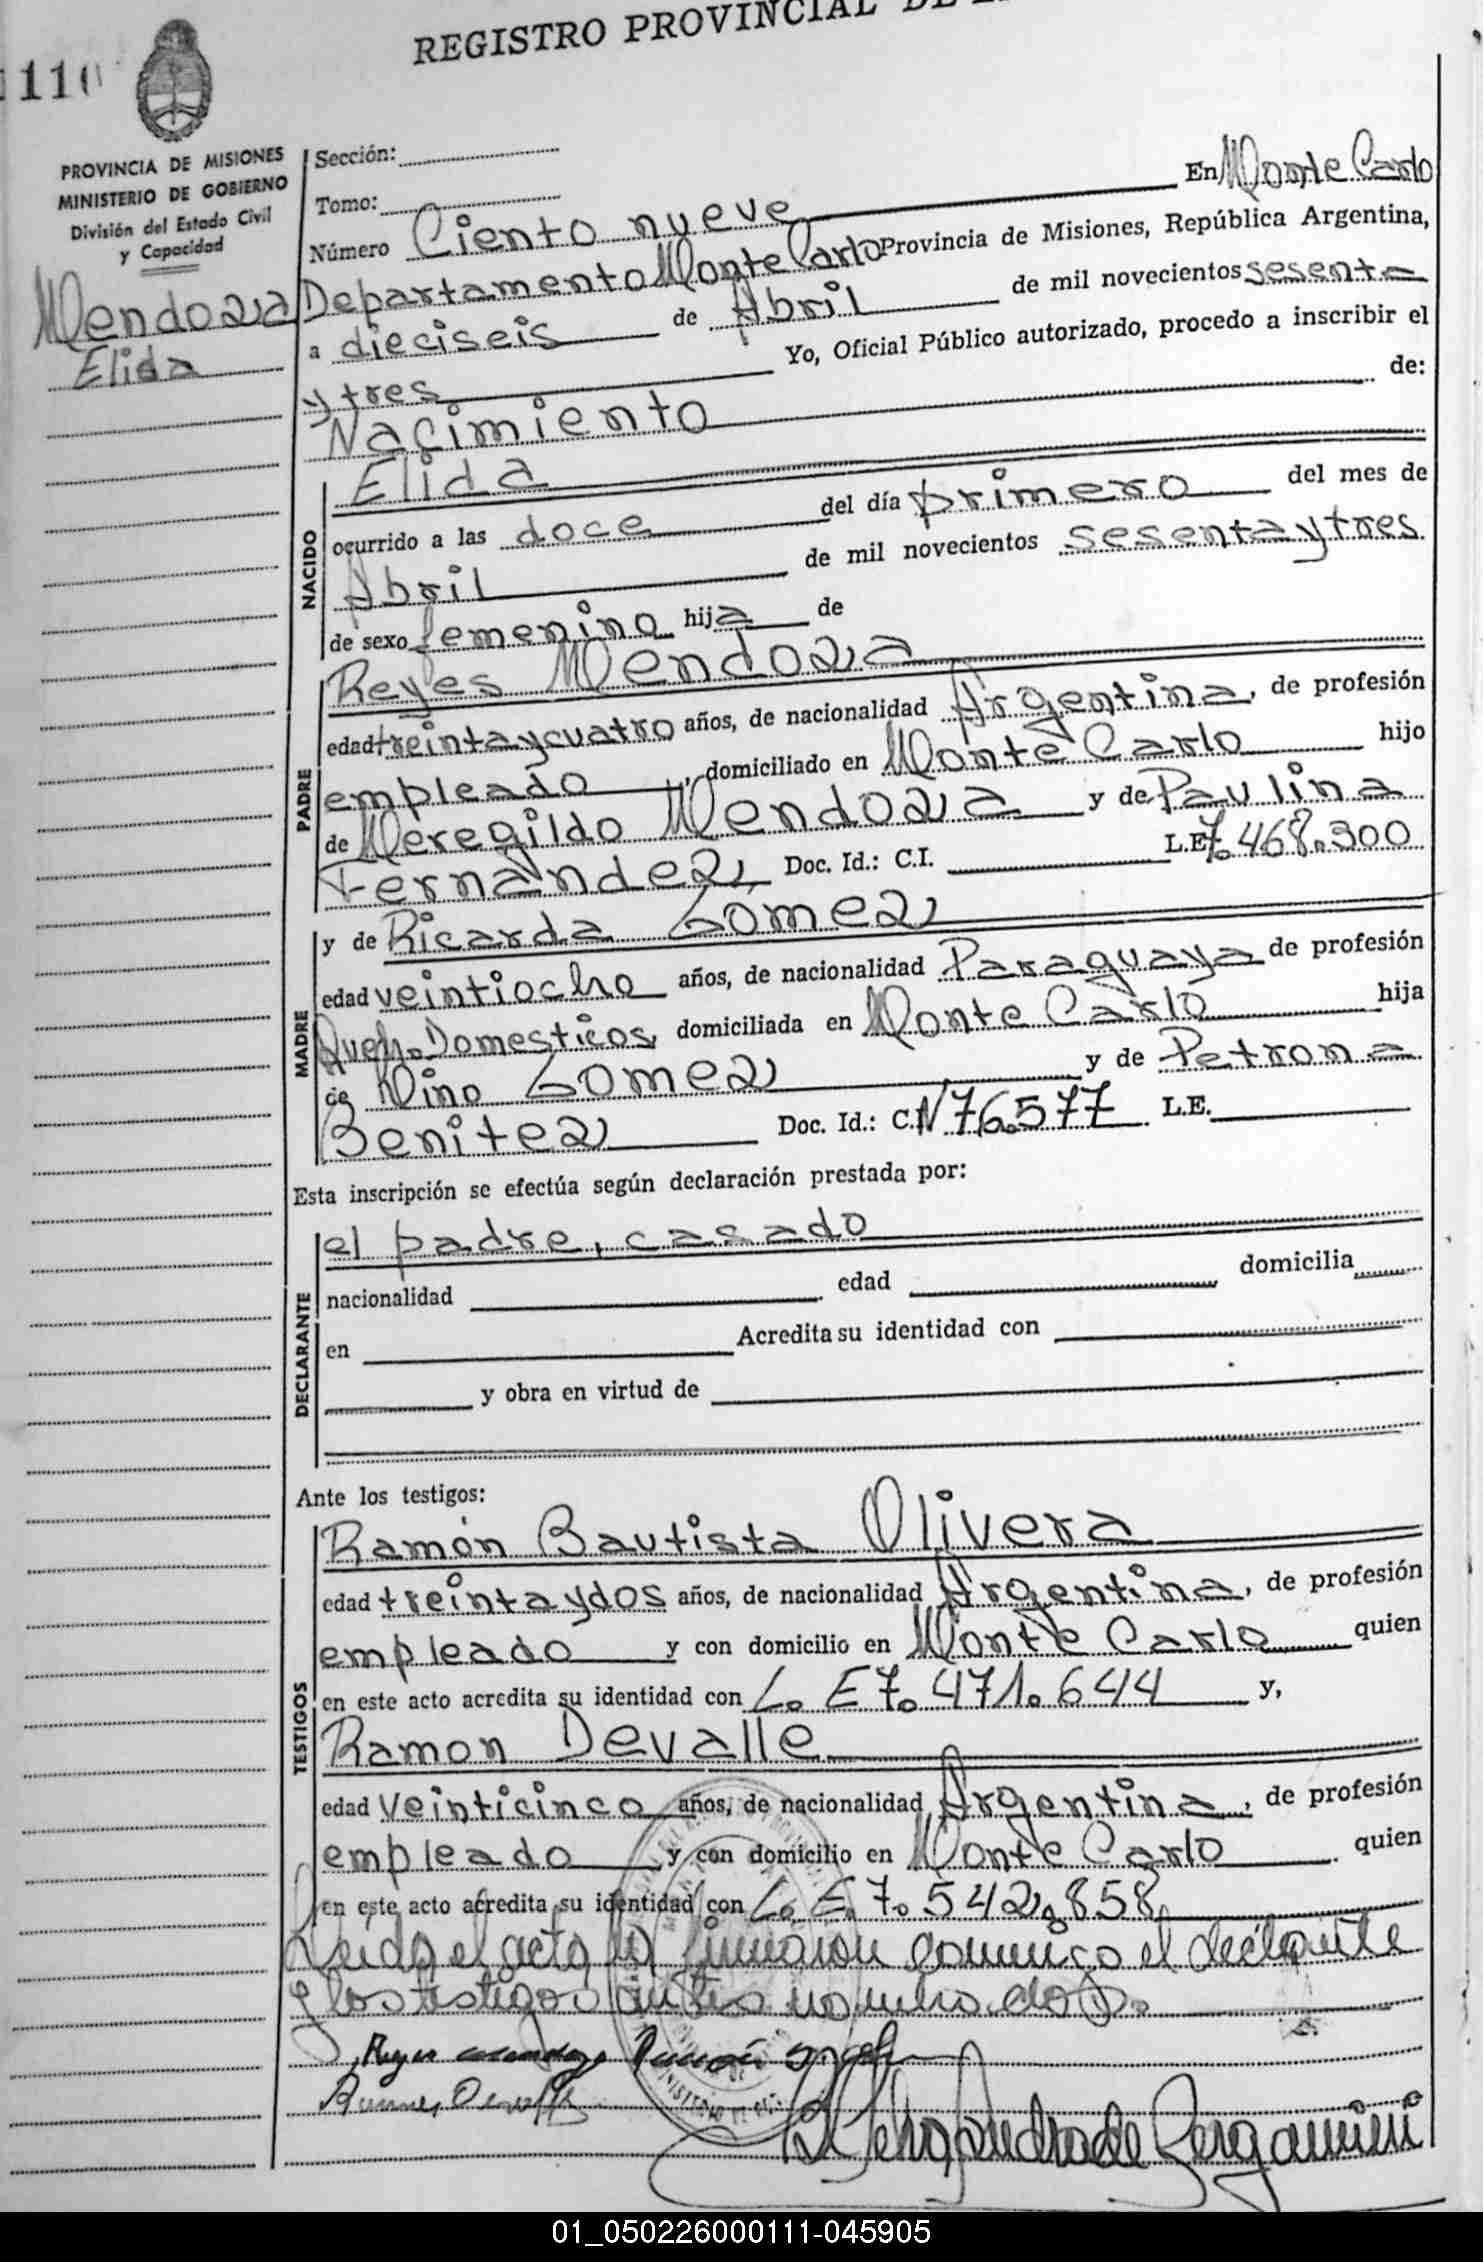 REGISTRO PROVINCIAL DE
110
PROVINCIA DE MISIONES
MINISTERIO DE GOBIERNO
División del Estado Civil
y Capacidad
Mendoza
Elida
Sección:
Tomo:
Número Ciento nueve En Monte Carlo
Departamento Monte Carlo Provincia de Misiones, República Argentina,
a dieciseis de Abril de mil novecientos sesenta
y tres Yo, Oficial Público autorizado, procedo a inscribir el
Nacimiento de:
NACIDO
Elida
ocurrido a las doce del día primero del mes de
Abril de mil novecientos sesenta y tres
de sexo femenino hija de
PADRE
Reyes Mendoza
edad treinta y cuatro años, de nacionalidad Argentina, de profesión
empleado, domiciliado en Monte Carlo hijo
de Meregildo Mendoza y de Paulina
Fernández, Doc. Id.: C.I. L.E 7.468.300
MADRE
y de Ricarda Gómez
edad veintiocho años, de nacionalidad Paraguaya de profesión
Queh. Domesticos, domiciliada en Monte Carlo hija
de Nino Gomez y de Petrona
Benitez Doc. Id.: C. N 76.577 L.E.
Esta inscripción se efectúa según declaración prestada por:
DECLARANTE
el padre, casado
nacionalidad edad domicilia
en Acredita su identidad con
y obra en virtud de
Ante los testigos:
TESTIGOS
Ramón Bautista Olivera
edad treinta y dos años, de nacionalidad Argentina, de profesión
empleado y con domicilio en Monte Carlo quien
en este acto acredita su identidad con L. E 7.471.644 y,
Ramon Devalle
edad veinticinco años, de nacionalidad Argentina, de profesión
empleado y con domicilio en Monte Carlo quien
en este acto acredita su identidad con L. E. 7.542.858
Leida el acta la firmaron conmigo el declarante
y los testigos antes nombrados.
Reyes Mendoza Ramón
de Bergamini
01_050226000111-045905